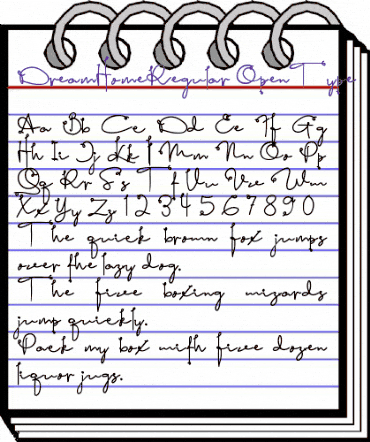 DreamHomeRegular Open Type
Aa Bb Cc Dd Ee Ff Gg
Hh Ii Jj Kk l Mm Nn Oo Pp
Qq Rr Ss T t Uu Vv Ww
Xx Yy Zz 1 2 3 4 5 6 7 8 9 0
The quick brown fox jumps
over the lazy dog.
The five boxing wizards
jump quickly.
Pack my box with five dozen
liquor jugs.